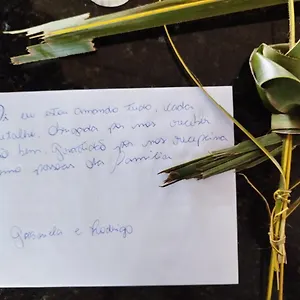 eu estou amando tudo, cada
detalhe. Obrigada por nos receber
tão bem. Gratidão por nos
como pessoas da família
e Rodrigo